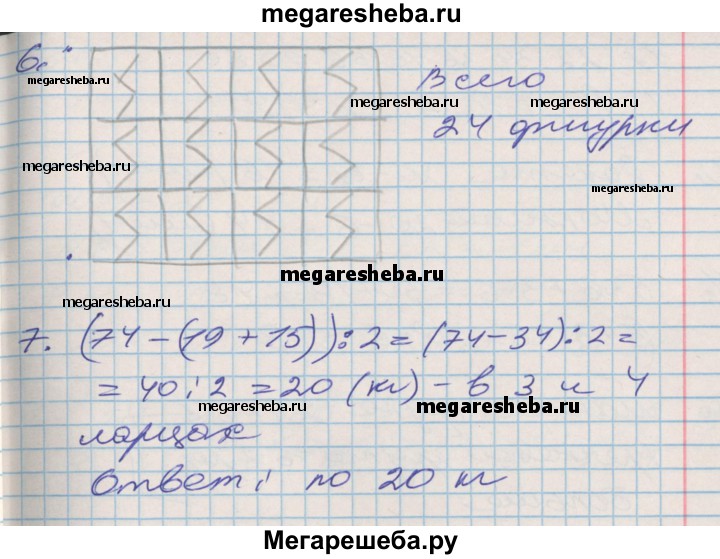 megaresheba.ru
6.
Всего
megaresheba.ru
megaresheba.ru
megaresheba.ru
24 фигурки
megaresheba.ru
megaresheba.ru
megaresheba.ru
megaresheba.ru
7. (74-(19+15)):2=(74-34):2=
=40:2=20 (кг)-в 3 и 4
megaresheba.ru
megaresheba.ru
ларцах
Ответ: по 20 кг
Мегарешеба.ру